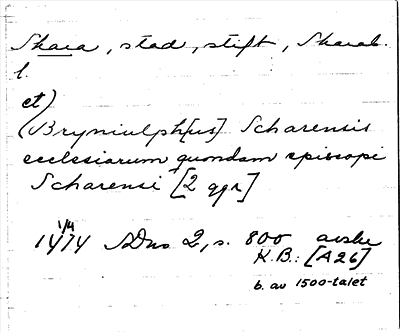 Skara, stad, stift, Skarab.
l.
et)
(Bryniulph[us] Scharensis
ecclesiarum quondam episcopi
Scharensi [2 ggr]
1/4
1474 SDns 2, s. 800 avskr
K.B.: [A26]
b. av 1500-talet